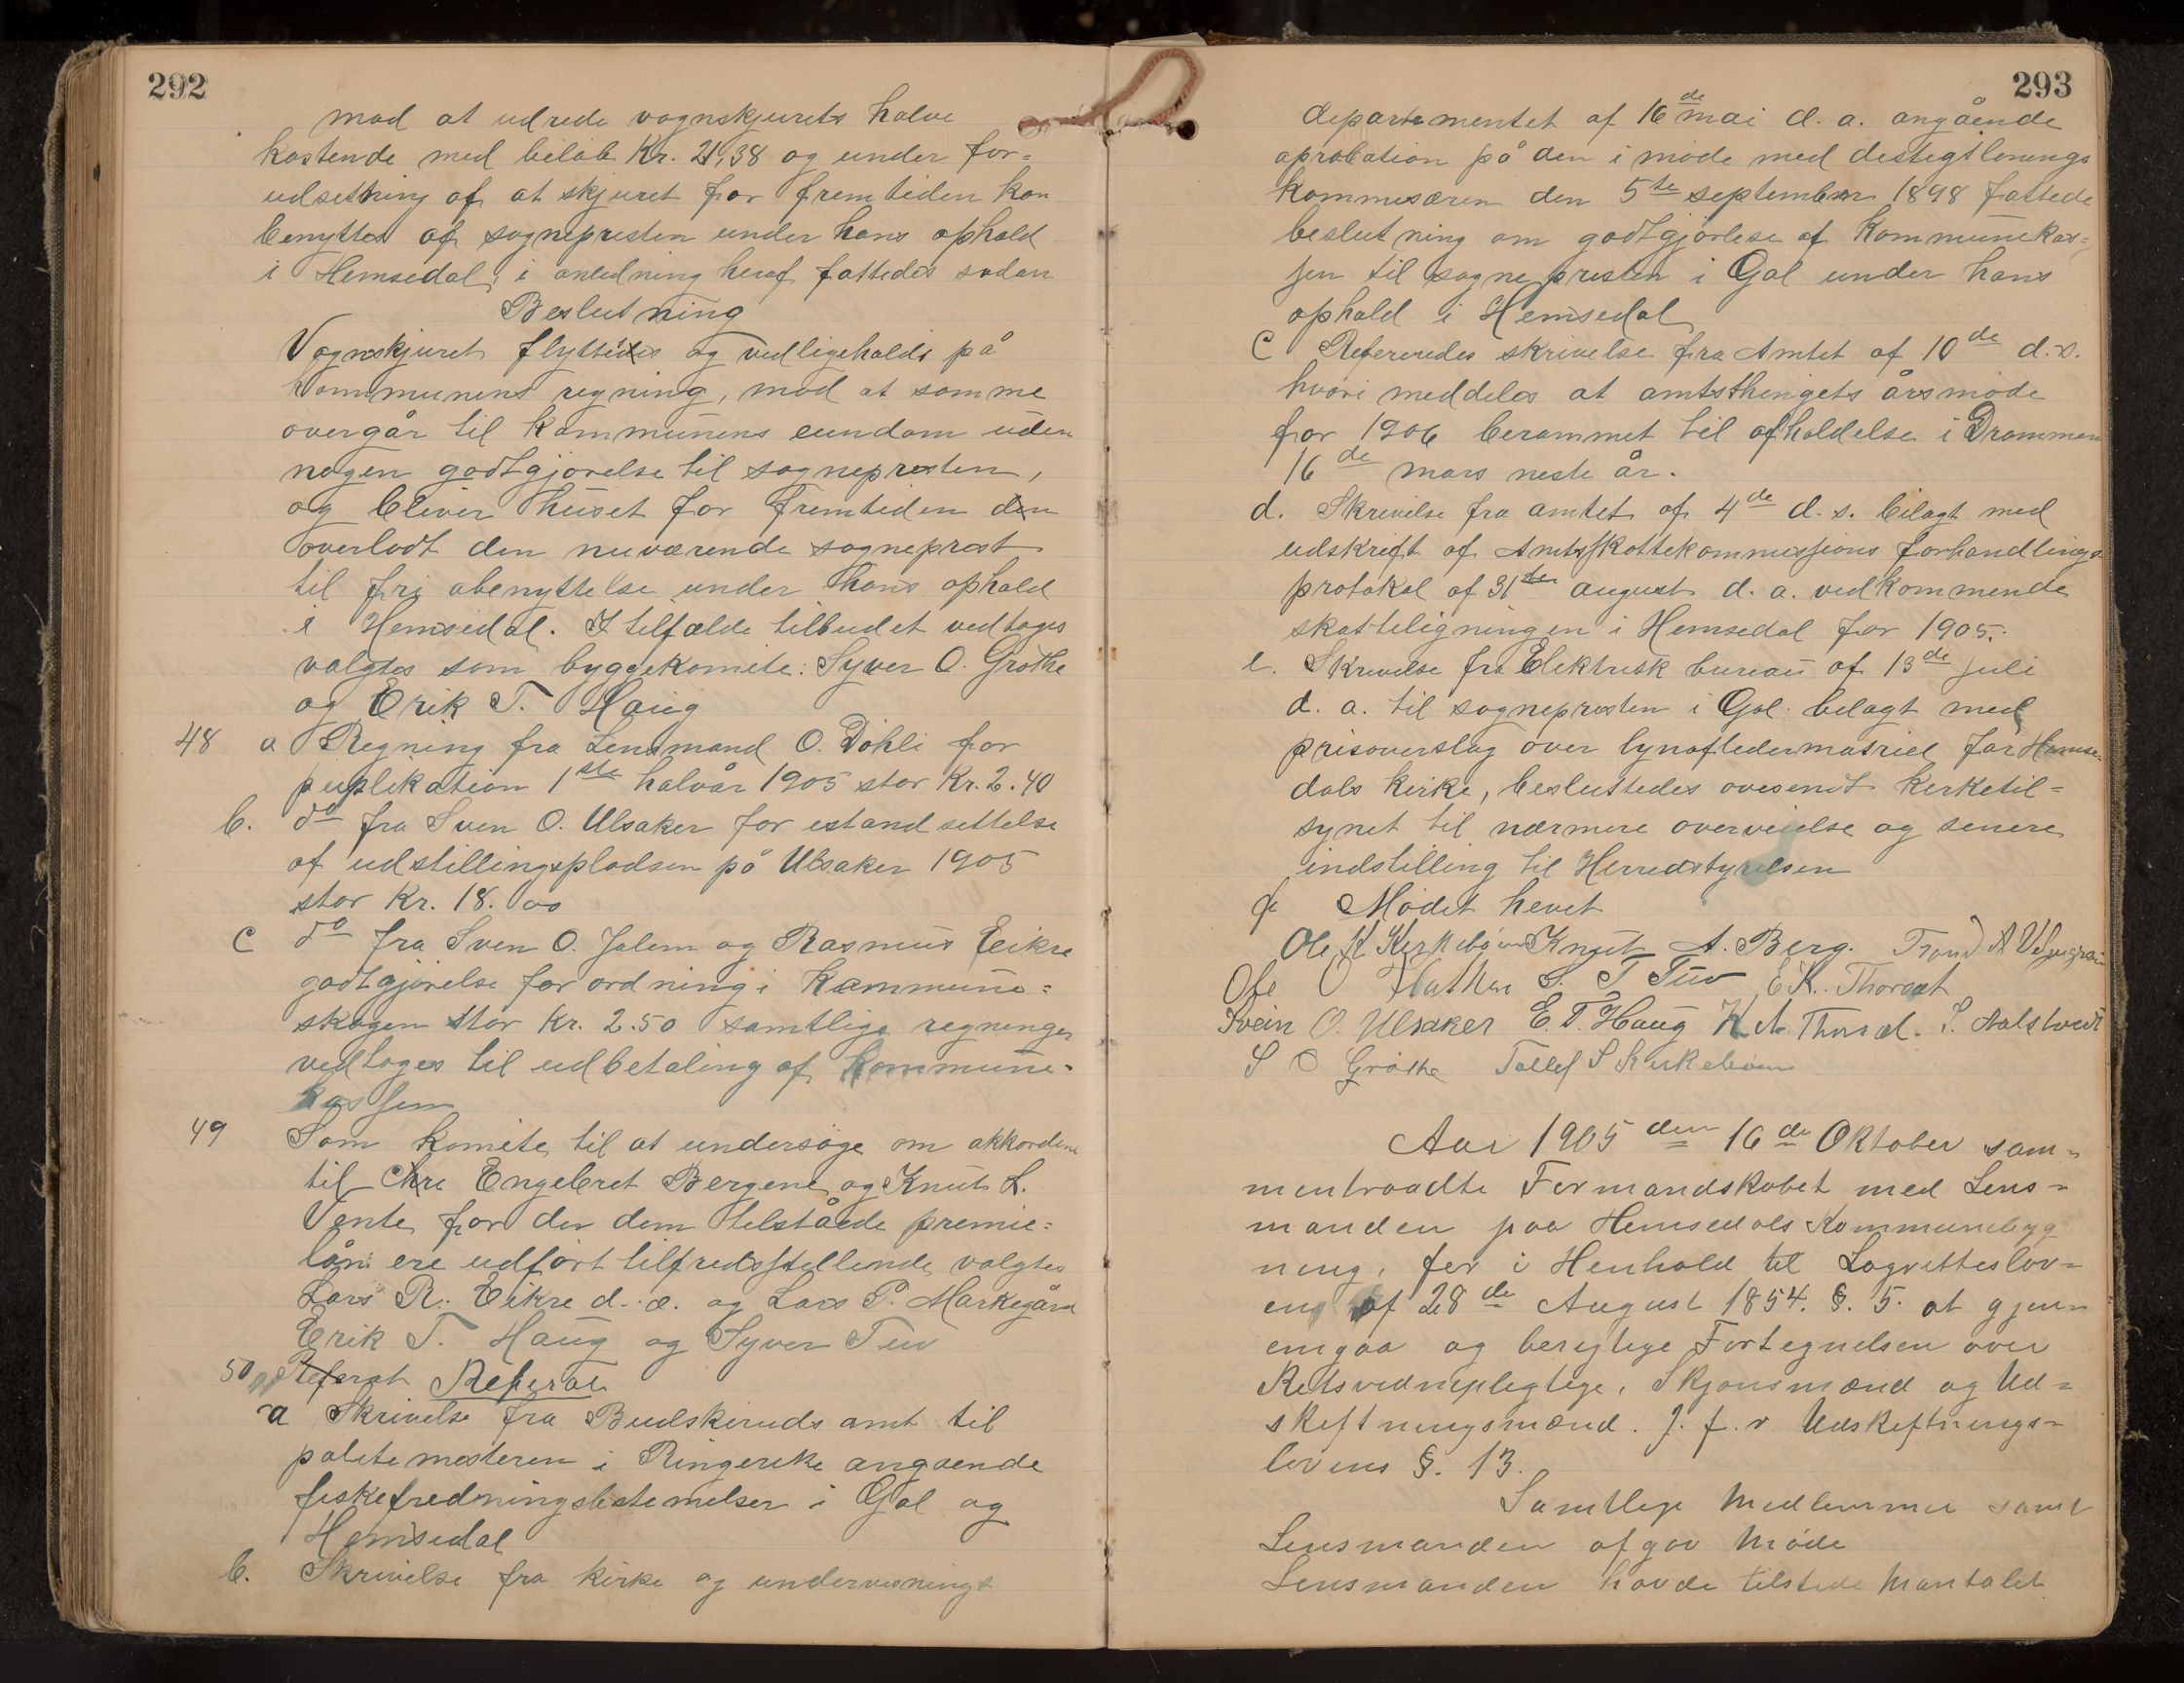 292
mod at udrede vognskjurets halve
kostende med beløb Kr. 21,38 og under for=
udsetning af at skjuret for fremtiden kan
benyttes af sognepresten under hans ophold
i Hemsedal; i anledning heraf fattedes sådan
Beslutning
Vognskjuret flyttes og vedligeholds på
kommunens regning, mod at samme
overgår til kommunens eiendom uden
nogen godtgjørelse til sognepresten,
og bliver huset for fremtiden
overlodt den nuværende sogneprest
til fri abenyttelse under hans ophold
i Hemsedal. I tilfælde tilbudet vedtages
valgtes som byggekomite: Syver O. Grøthe
og Erik T. Haug
48 a Regning fra Lensmand O. Døhli for
puplikation 1ste halvår 1905 stor Kr. 2.40
b. do fra Sven O. Ulsaker for istandsettelse
af udstillingspladsen på Ulsaker 1905
stor Kr. 18.00
c do fra Sven O. Jalem og Rasmus Eikre
godtgjørelse for ordning i Kommune=
skogen stor Kr. 2.50 samtlige regninger
vedtoges til udbetaling af kommune=
kassen
49 Som komite til at undersøge om akkordene
til Engebret Bergene og Knut L.
Vente for der dem tilståede premie=
lån ere udført tilfredsstillende valgtes
Lars R. Eikre d. æ. og Lars P. Markegård
Erik T. Haug og Syver Tuv
50 Referat Referat
a Skrivelse fra Budskeruds amt til
politemesteren i Ringerike angaende
fiskefredningsbestemelser i Gol og
Hemsedal
b. Skrivelse fra kirke og undervisnings
293
departementet af 16de mai d. a. angående
aprobation på den i møde med
kommisæren den 5te september 1898 fattede
beslutning om godtgjørlese af Kommunekas=
sen til sognepresten i Gol under hans
ophold i Hemsedal
C Refereredes skrivelse fra Amtet af 10de d.s.
hvori meddeles at amtsthingets årsmøde
for 1906 berammet til afholdelse i Drammen
16de mars neste år.
d. Skrivelse fra amtet af 4de d.s. bilagt med
udskrift af Amtsskattekommissions forhandlings
protokol af 31te august d. a. vedkommende
skatteligningen i Hemsedal for 1905.
e. Skrivelse fra Elektrisk bureau af 13de juli
d. a. til sognepresten i Gol bilagt med
prisoverslag over lynafledermatriel for Hemse=
dals kirke, besluttedes ovesendt kirketil=
synet til nærmere overveielse og senere
indstilling til Herredstyrelsen
f Mødet hevet
Ole K Kirkebøen Knut A. Berg. Trond A
Ole O Flathen S. T Tuv E K. Thorset
Svein O. Ulsaker E. T. Haug K A. Thorset. S. Aalstveit
S O Grøthe Tollef S Kirkebøen
Aar 1905 den 16de Oktober sam=
mentraadte Formandskabet med Lens=
manden paa Hemsedals Kommunebyg
ning, for i Henhold til Lagretteslov=
en af 28de August 1854. §. 5. at gjen=
emgaa og berigtige Fortegnelsen over
Retsvidnepligtige, Skjønsmænd og Ud=
skiftningsmænd. J. f. r Udskiftnings=
lovens §. 13.
Samtlige Medlemmer samt
Lensmanden afgav Møde
Lensmanden havde tilstede Mantalet